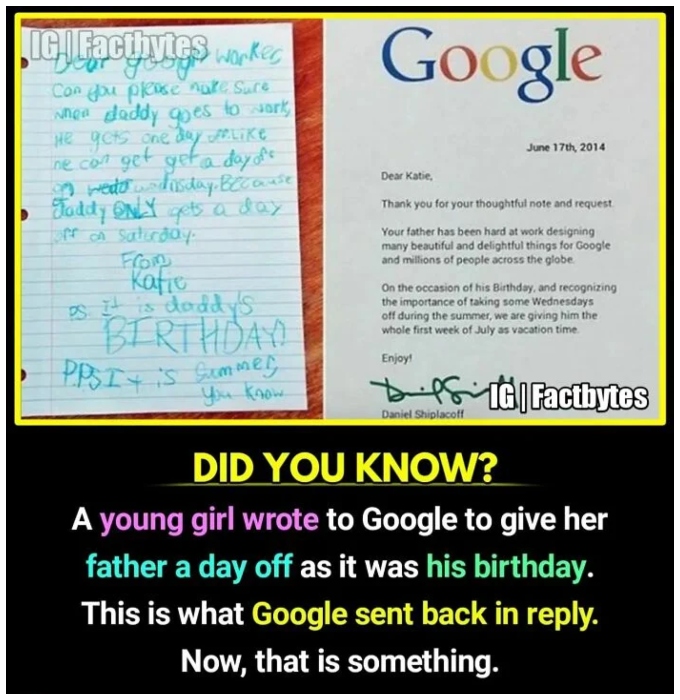 IG | Factbytes
Dear google worker
Can you please make sure
when daddy goes to work
He gets one day off. LIKE
he can get get a day off
on wedo wednisday. Because
daddy ONLY gets a day
off on saturday.
From,
Katie
PS. It is daddy's
BIRTHDAY!
P.P.S It is Summer,
You know
Google
June 17th, 2014
Dear Katie,
Thank you for your thoughtful note and request.
Your father has been hard at work designing
many beautiful and delightful things for Google
and millions of people across the globe.
On the occasion of his Birthday, and recognizing
the importance of taking some Wednesdays
off during the summer, we are giving him the
whole first week of July as vacation time.
Enjoy!
IG | Factbytes
Daniel Shiplacoff
DID YOU KNOW?
A young girl wrote to Google to give her
father a day off as it was his birthday.
This is what Google sent back in reply.
Now, that is something.